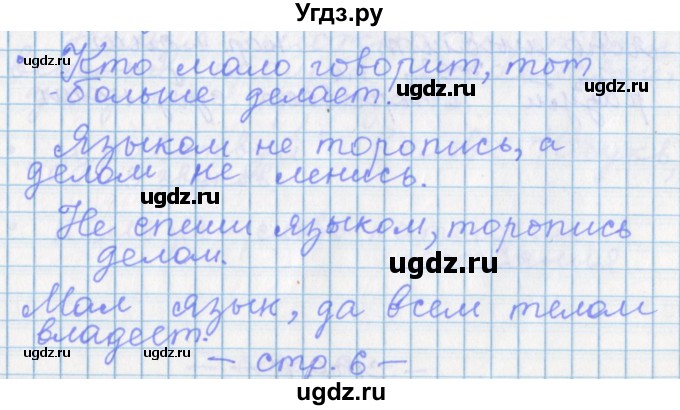 Угдз.ру
Кто мало говорит, тот
больше делает.
Языком не торопись, а
делом не ленись.
Не спеши языком, торопись
делом.
Мал язык, да всем телом
владеет.
— стр. 6 —
ugdz.ru
ugdz.ru
ugdz.ru
ugdz.ru
ugdz.ru
ugdz.ru
ugdz.ru
ugdz.ru
ugdz.ru